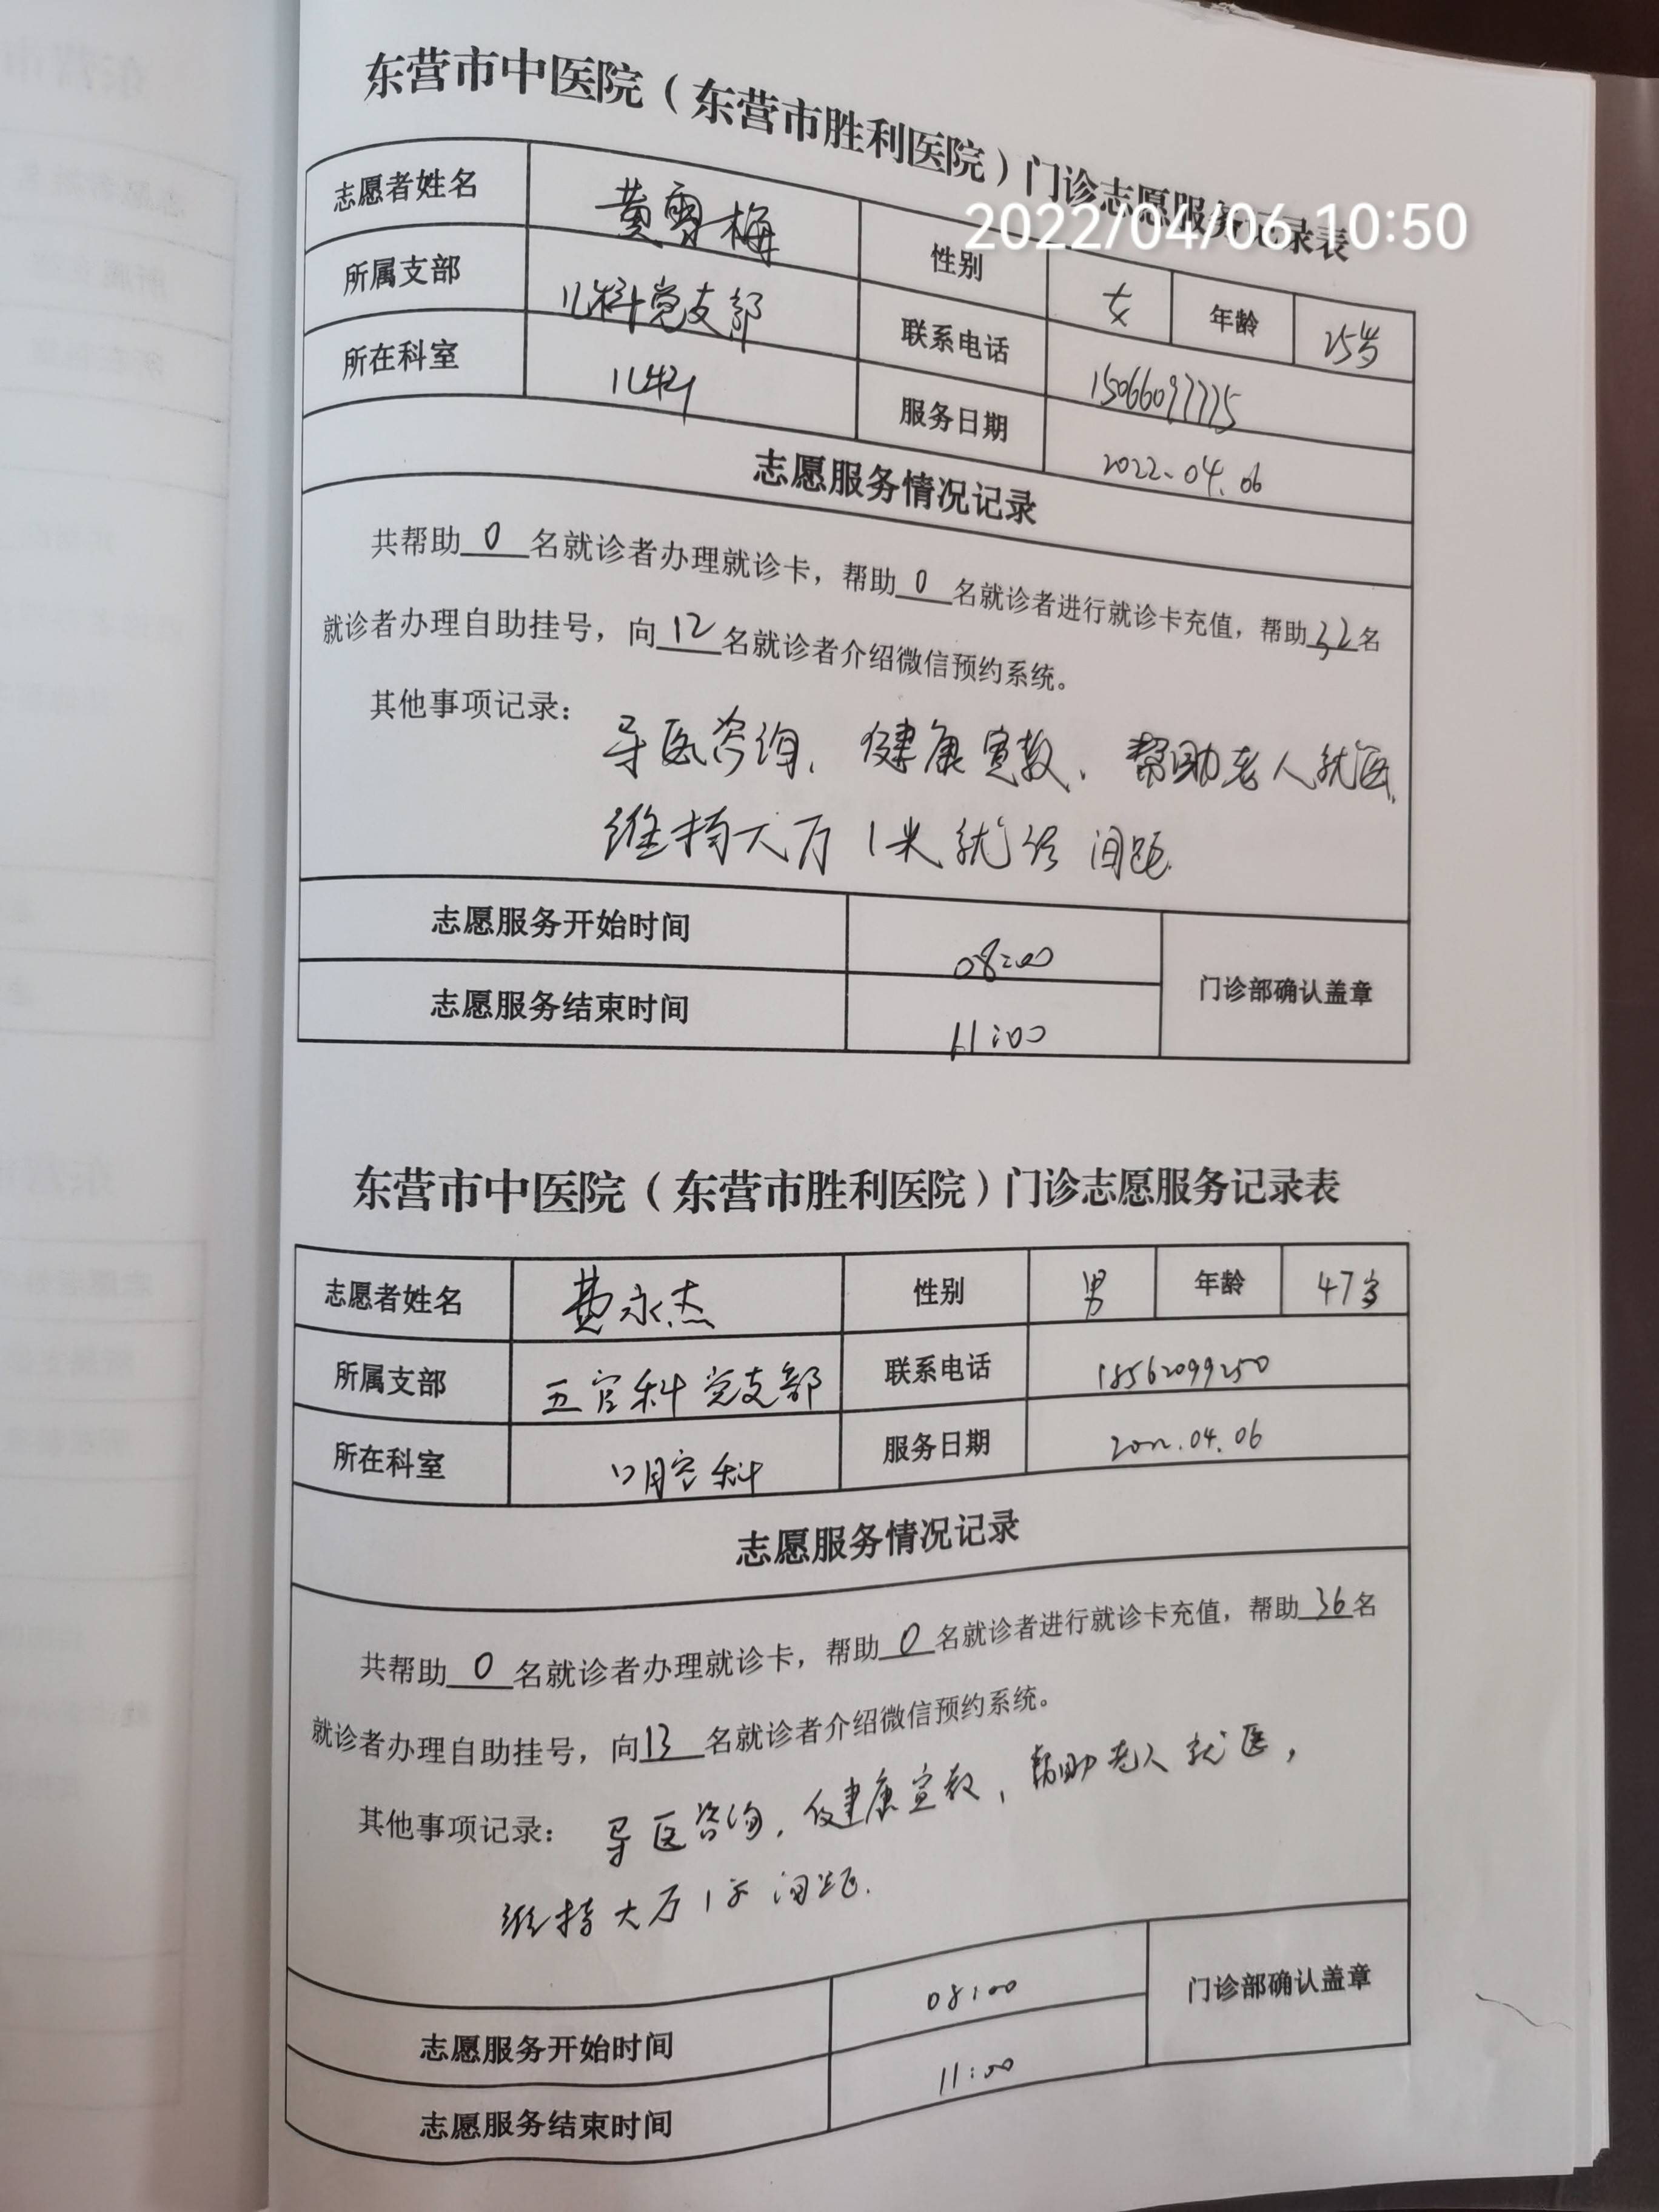 东营市中医院（东营市胜利医院）门诊志愿服务记录表
2022/04/06 10:50
志愿者姓名 黄雪梅 性别 女 年龄 25岁
所属支部 儿科党支部 联系电话 15066097775
所在科室 儿科 服务日期 2022.04.06
志愿服务情况记录
共帮助0名就诊者办理就诊卡，帮助0名就诊者进行就诊卡充值，帮助32名
就诊者办理自助挂号，向12名就诊者介绍微信预约系统。
其他事项记录：导医咨询、健康宣教、帮助老人就医、
维持大厅1米就诊间距.
志愿服务开始时间 08:00
门诊部确认盖章
志愿服务结束时间 11:00
东营市中医院（东营市胜利医院）门诊志愿服务记录表
志愿者姓名 费永杰 性别 男 年龄 47岁
所属支部 五官科党支部 联系电话 18562099250
所在科室 口腔科 服务日期 2022.04.06
志愿服务情况记录
共帮助0名就诊者办理就诊卡，帮助0名就诊者进行就诊卡充值，帮助36名
就诊者办理自助挂号，向13名就诊者介绍微信预约系统。
其他事项记录：导医咨询，健康宣教，帮助老人就医，
维持大厅1米间距.
志愿服务开始时间 08:00
门诊部确认盖章
志愿服务结束时间 11:00